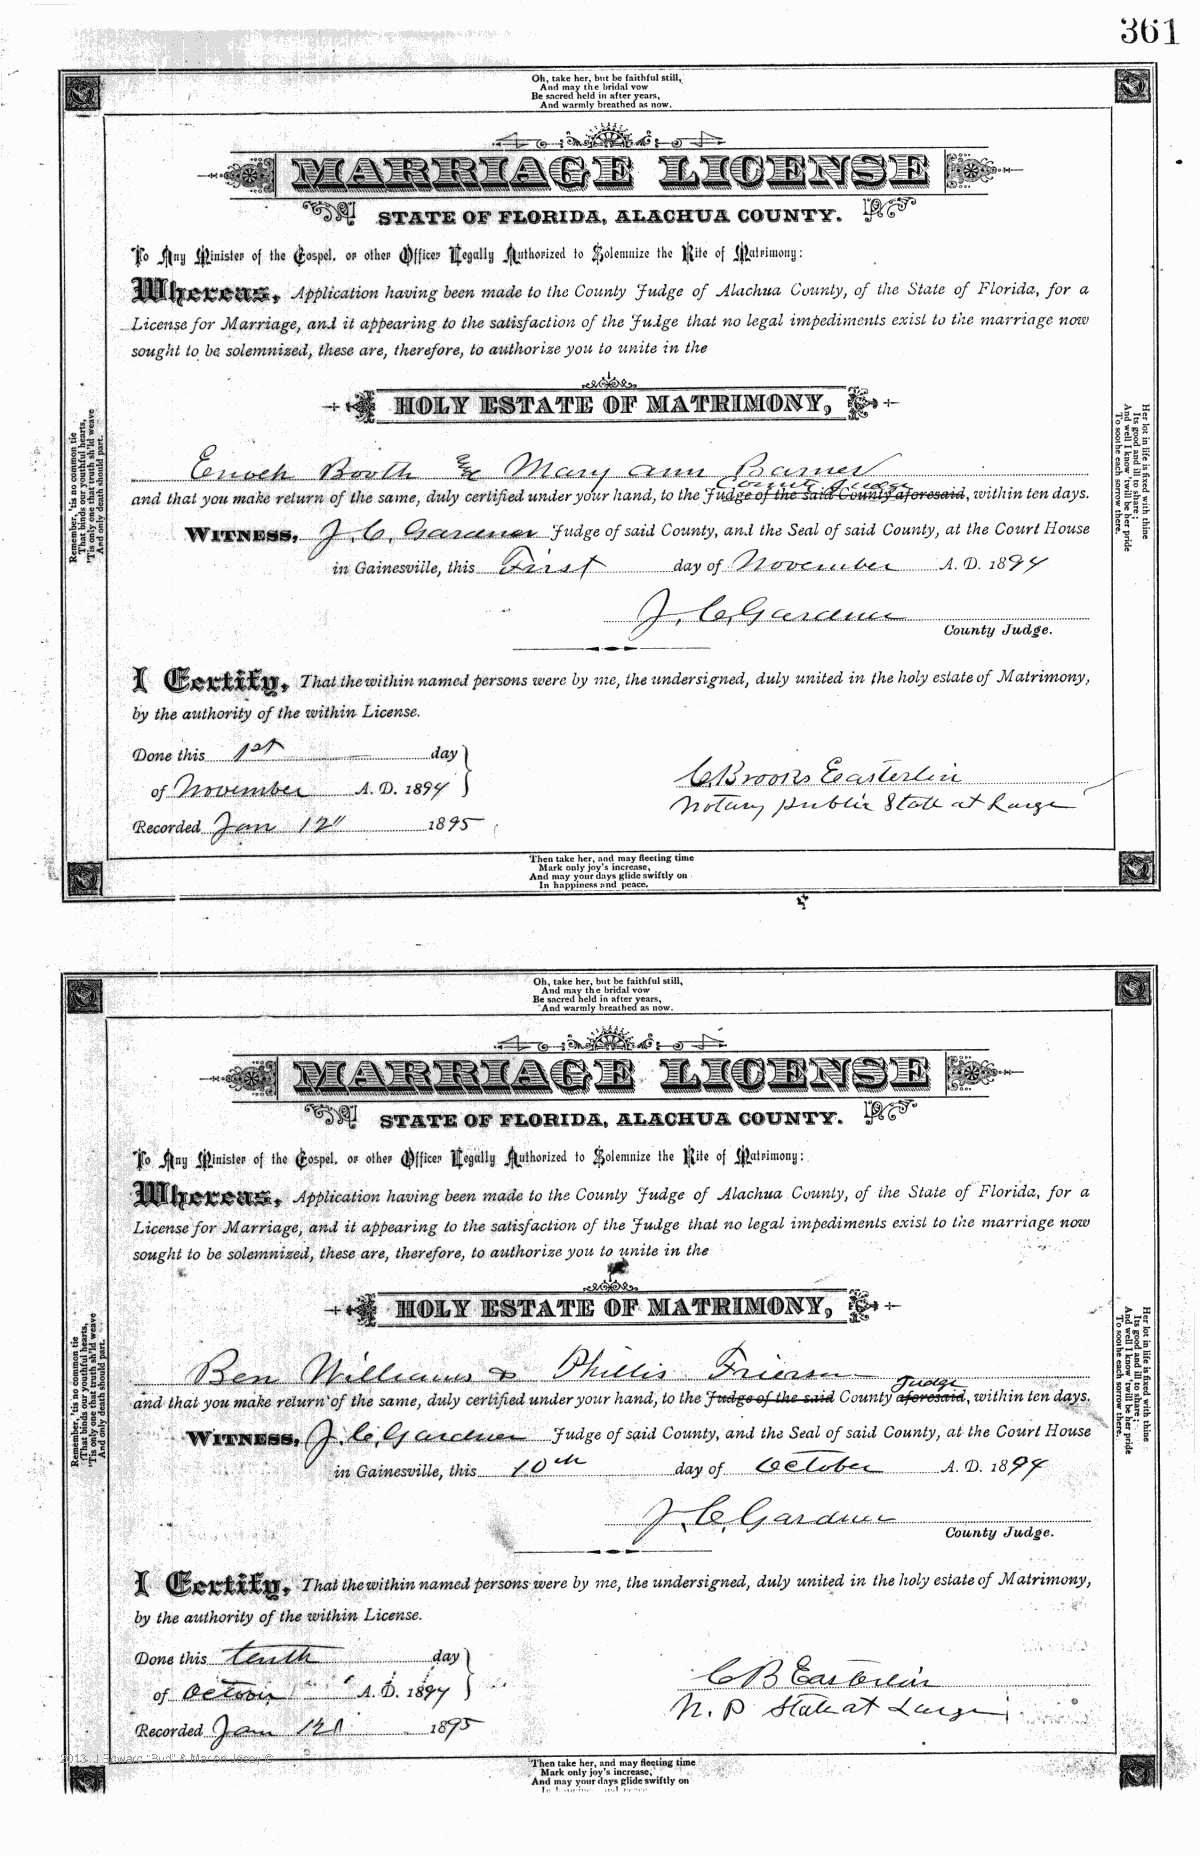 361
Oh, take her, but be faithful still,
And may the bridal vow
Be sacred held in after years,
And warmly breathed as now.
MARRIAGE LICENSE
STATE OF FLORIDA, ALACHUA COUNTY.
To Any Minister of the Gospel, or other Officer Legally Authorized to Solemnize the Rite of Matrimony:
Whereas, Application having been made to the County Judge of Alachua County, of the State of Florida, for a
License for Marriage, and it appearing to the satisfaction of the Judge that no legal impediments exist to the marriage now
sought to be solemnized, these are, therefore, to authorize you to unite in the
HOLY ESTATE OF MATRIMONY,
Enoch Booth & Mary Ann Barnes
County Judge
and that you make return of the same, duly certified under your hand, to the Judge of the said County aforesaid, within ten days.
WITNESS, J. C. Gardner Judge of said County, and the Seal of said County, at the Court House
in Gainesville, this First day of November A. D. 1894
J. C. Gardner
County Judge.
I Certify, That the within named persons were by me, the undersigned, duly united in the holy estate of Matrimony,
by the authority of the within License.
Done this 1st day
of November A. D. 1894
C. Brooks Easterlin
Notary public State at Large
Recorded Jan 12" 1895
Then take her, and may fleeting time
Mark only joy's increase,
And may your days glide swiftly on
In happiness and peace.
Remember, 'tis no common tie
That binds our youthful hearts,
'Tis only one that truth sh'ld weave
And only death should part.
Her lot in life is fixed with thine
Its good and ill to share;
And well I know 'twill be her pride
To soothe each sorrow there.
Oh, take her, but be faithful still,
And may the bridal vow
Be sacred held in after years,
And warmly breathed as now.
MARRIAGE LICENSE
STATE OF FLORIDA, ALACHUA COUNTY.
To Any Minister of the Gospel, or other Officer Legally Authorized to Solemnize the Rite of Matrimony:
Whereas, Application having been made to the County Judge of Alachua County, of the State of Florida, for a
License for Marriage, and it appearing to the satisfaction of the Judge that no legal impediments exist to the marriage now
sought to be solemnized, these are, therefore, to authorize you to unite in the
HOLY ESTATE OF MATRIMONY,
Ben Williams & Phillis Frierson
Judge
and that you make return of the same, duly certified under your hand, to the Judge of the said County aforesaid, within ten days.
WITNESS, J. C. Gardner Judge of said County, and the Seal of said County, at the Court House
in Gainesville, this 10th day of October A. D. 1894
J. C. Gardner
County Judge.
I Certify, That the within named persons were by me, the undersigned, duly united in the holy estate of Matrimony,
by the authority of the within License.
Done this tenth day
of October A. D. 1894
C B Easterlin
N. P State at Large
Recorded Jan 12 1895
Then take her, and may fleeting time
Mark only joy's increase,
And may your days glide swiftly on
Remember, 'tis no common tie
That binds our youthful hearts,
'Tis only one that truth sh'ld weave
And only death should part.
Her lot in life is fixed with thine
Its good and ill to share;
And well I know 'twill be her pride
To soothe each sorrow there.